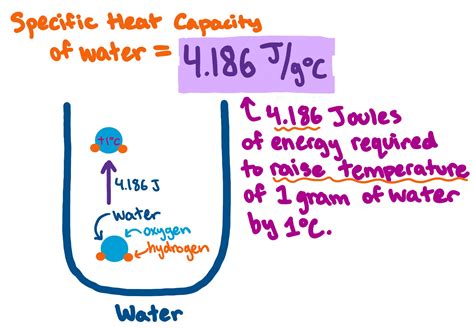 Specific Heat Capacity
of water = 4.186 J/g°C
↑ 4.186 Joules
of energy required
to raise temperature
of 1 gram of water
by 1°C.
+1°C
4.186 J
water
oxygen
hydrogen
Water